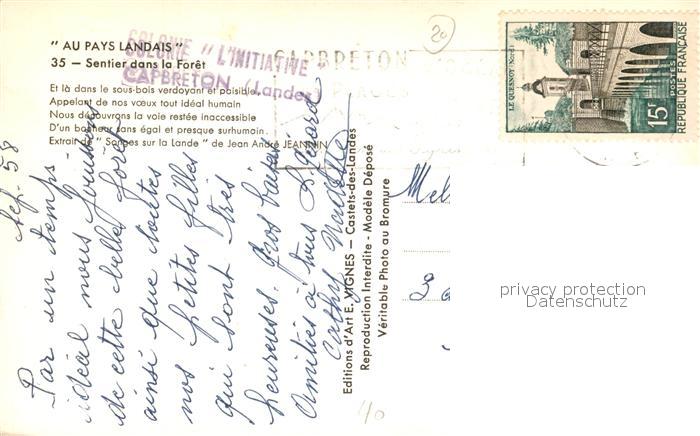 " AU PAYS LANDAIS "
35 — Sentier dans la Forêt
Et là dans le sous-bois verdoyant et paisible,
Appelant de nos vœux tout idéal humain
Nous découvrons la voie restée inaccessible
D'un bonheur sans égal et presque surhumain.
Extrait de " Songes sur la Lande " de Jean André JEANNIN
COLONIE " L'INITIATIVE "
CAPBRETON (Landes)
CAPBRETON
20
LE QUESNOY (Nord)
15F
POSTES
REPUBLIQUE FRANÇAISE
58
Par un temps
idéal nous jouissons
de cette belle forêt
ainsi que toutes
nos petites filles
qui sont très
heureuses. Gros baisers
Amitiés à tous
Cathy
Editions d'Art E. VIGNES — Castets-des-Landes
Reproduction Interdite - Modèle Déposé
Véritable Photo au Bromure
Mel
40
privacy protection
Datenschutz